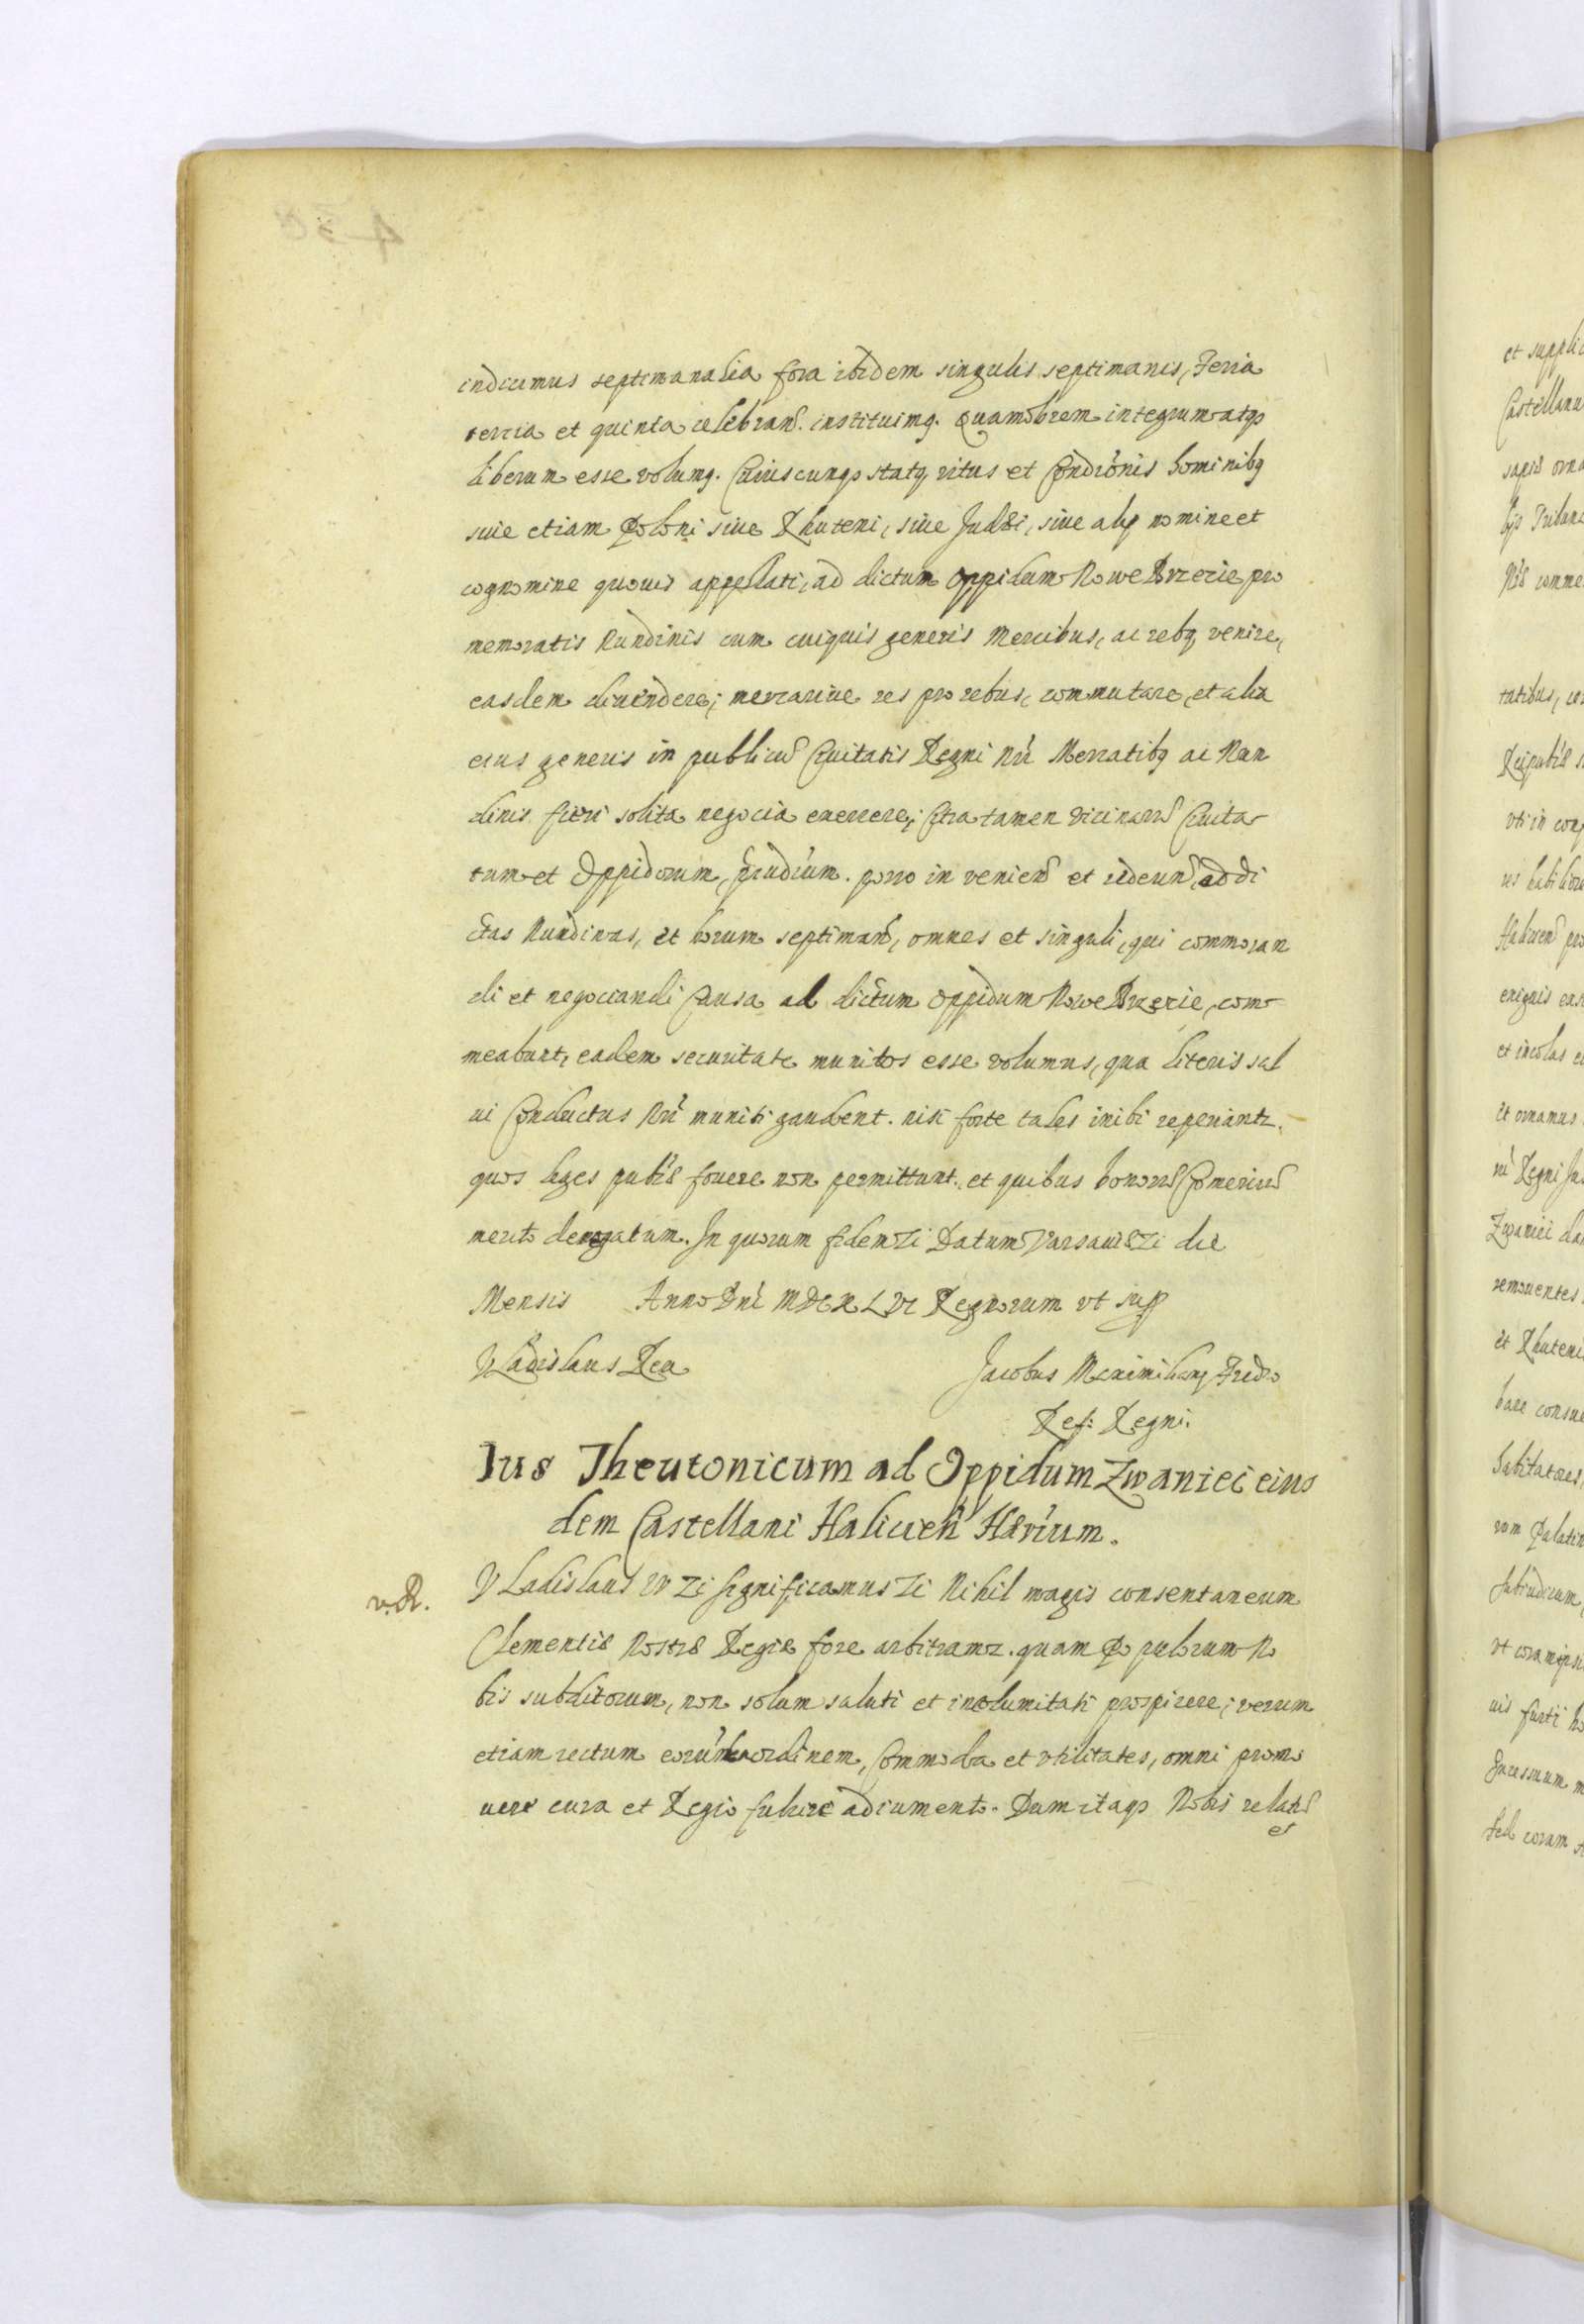 indicimus septimanalia fora ibidem singulis septimanis, Feria
tercia et quinta celebrand. instituimq. Quamobrem integrum atqꝫ
liberum esse volumq. Cuiuscunqꝫ statq, ritus et Condiönis hominibq
siue etiam Poloni siue Rhuteni, siue Judæi, siue aliq nomine et
cognomine quouis appellati, ad dictum Oppidum Nowe Brzezie pro
memoratis Nundinis cum cuiquis generis Mercibus, ac rebq, venire,
easdem diuendere, mercariue res pro rebus, commutare, et alia
eius generis in publicis Ciuitatis Regni Nri Mercatibq ac Nun
dinis fieri solita negocia exercere, Citra tamen vicinarū Ciuita
tum et Oppidorum, præiudicium. porro in venien̄ et redeun̄, ad di
ctas Nundinas, et forum septiman̄, omnes et singuli, qui commoran
di et negociandi Causa ad dictum Oppidum Nowe Brzezie, com
meabunt, eadem securitate munitos esse volumus, qua literis sal
ui Conductus Nri muniti gaudent. nisi forte tales inibi reperiantr.
quos leges publæ fouere non permittunt. et quibus honorū Comerciū
merito denegatum. In quorum fidem zi Datum Varsauiæ zi die
Mensis Anno Dni MDCXLVI Regnorum vt sup
Vladislaus Rex
Jacobus Maximilianq Fredro
Ref: Regni.
Ius Theutonicum ad Oppidum Zwaniec eius
dem Castellani Halicien̄ Hærium.
v.R.
Vladislaus IV zi significamus zi Nihil magis consentaneum
Clementiæ Nostræ Regiæ fore arbitramr. quam Populorum No
bis subditorum, non solum saluti et incolumitati prospicere, verum
etiam rectum eorum ordinem, Commoda et vtilitates, omni promo
uere cura et Regio fulcire adiumento. Dum itaqꝫ Nobis relatū
et